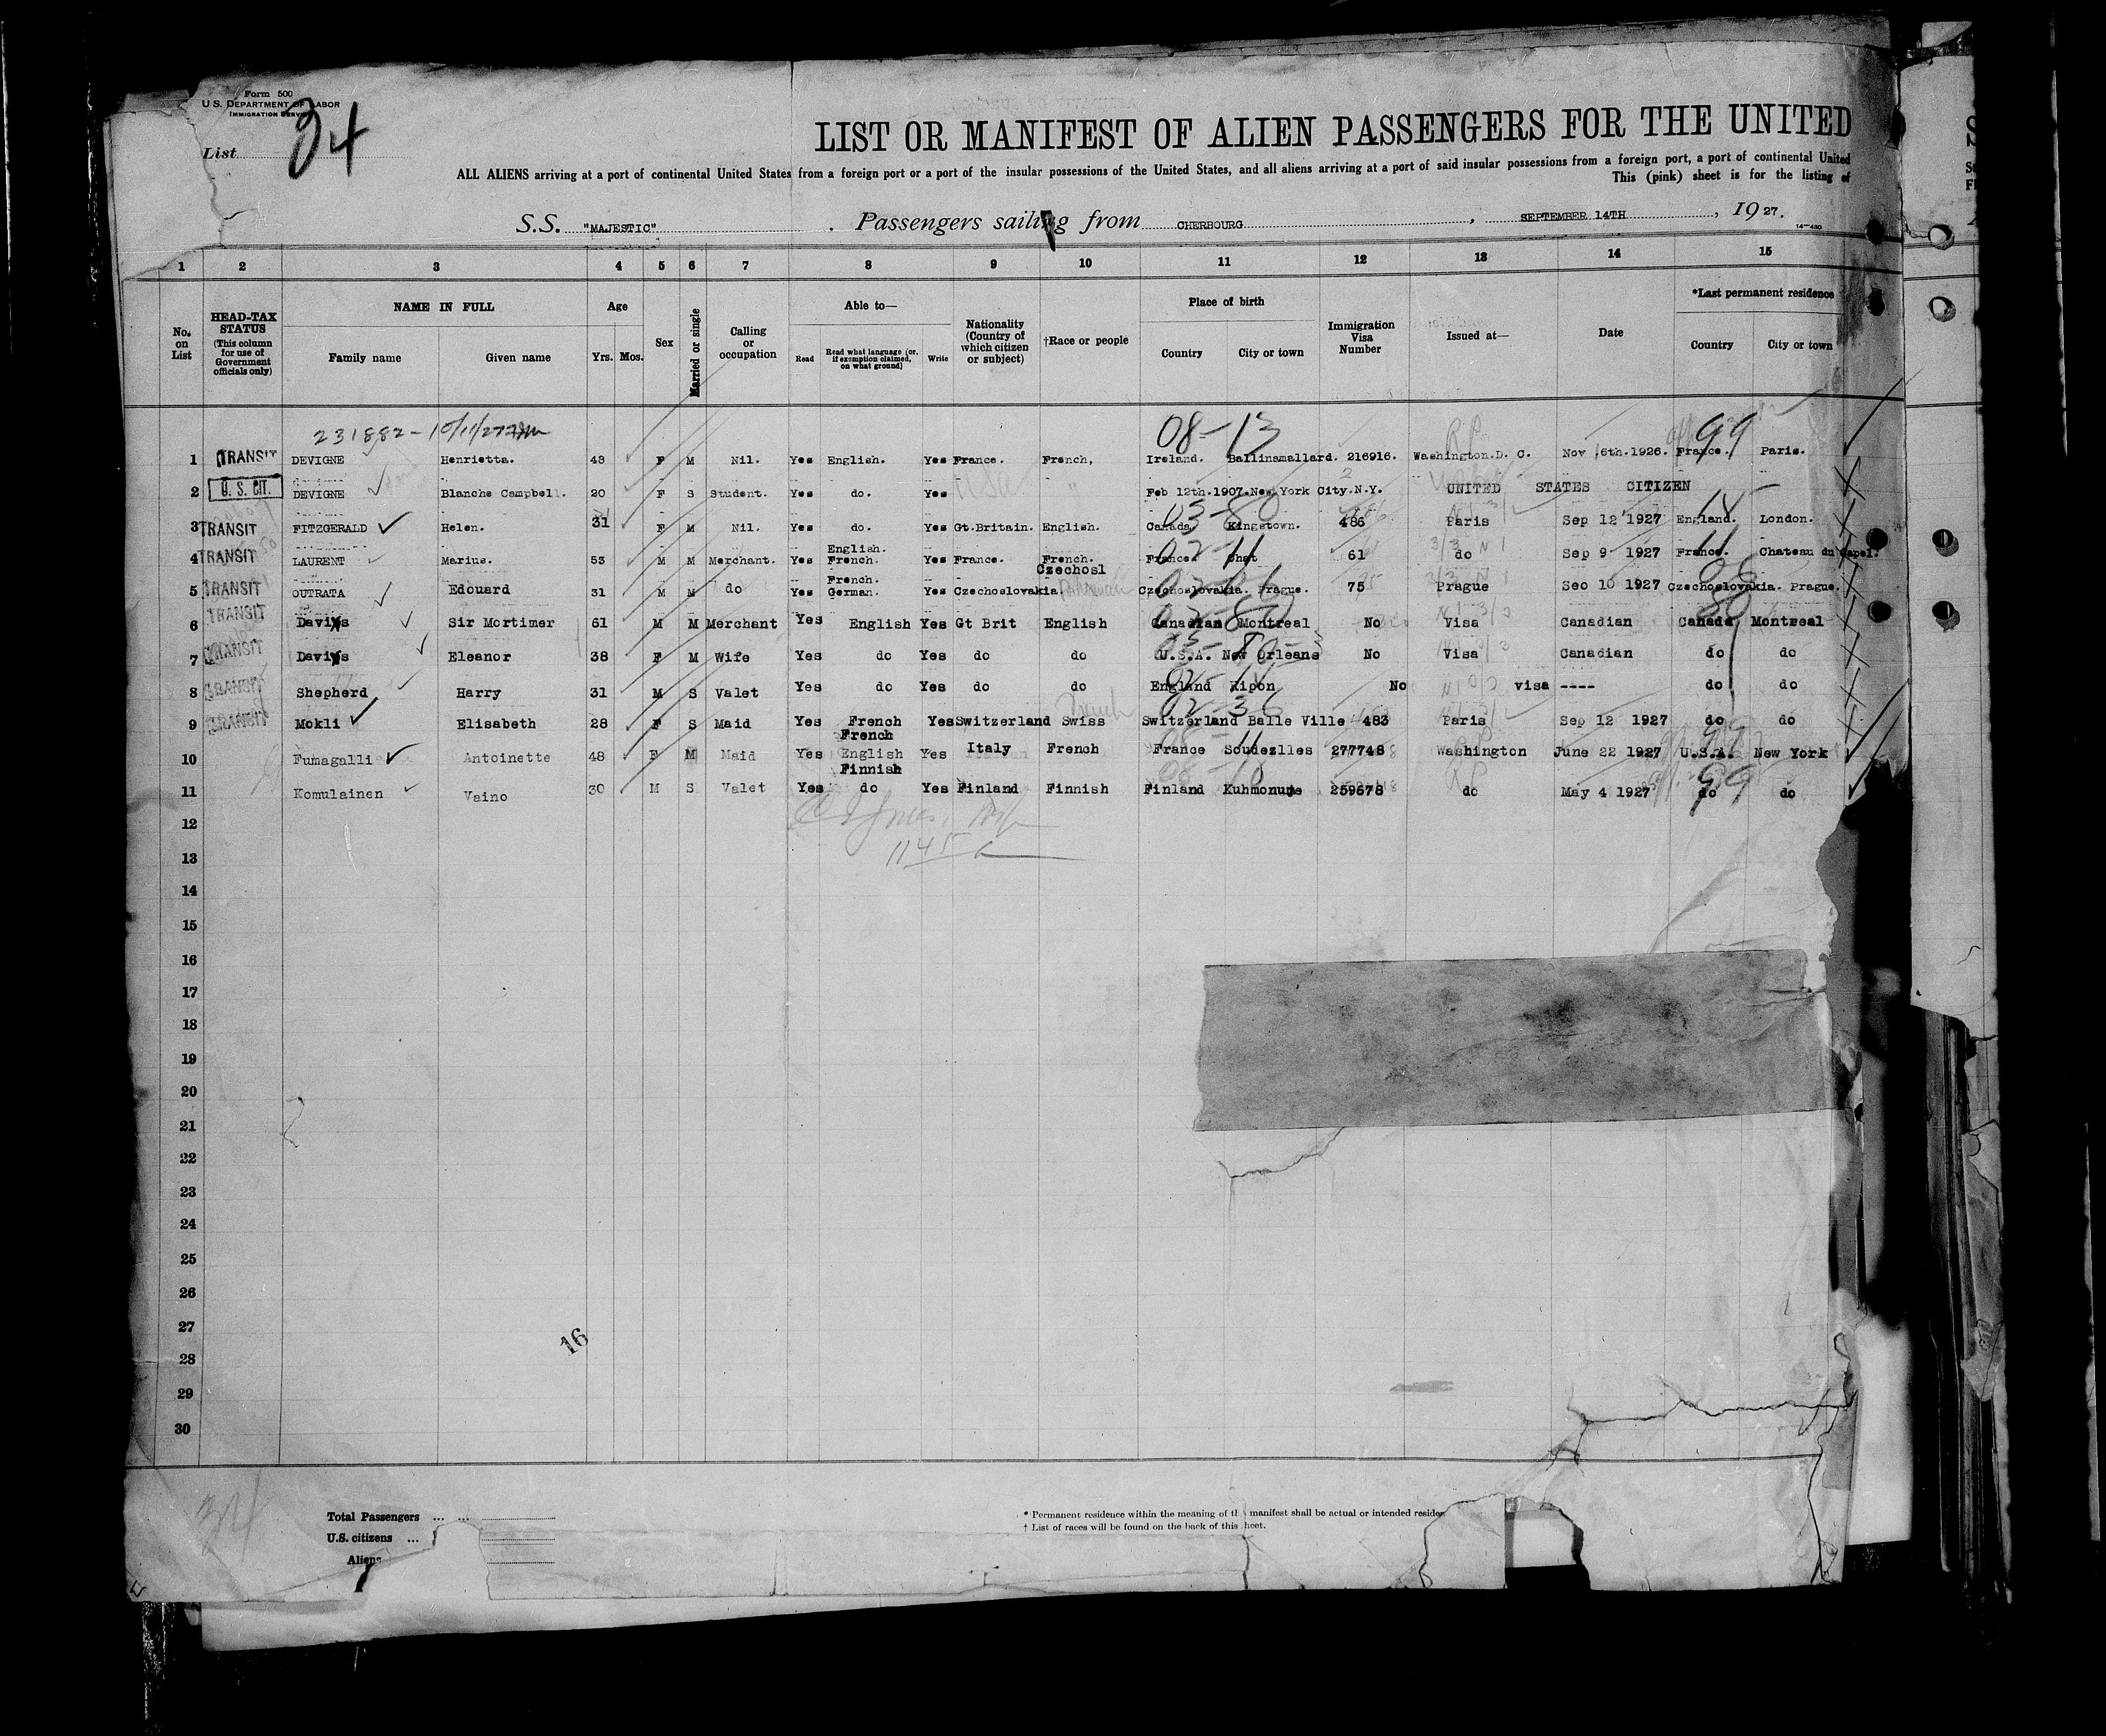 Form 500
U.S. DEPARTMENT OF LABOR
IMMIGRATION SERVICE
List 34
LIST OR MANIFEST OF ALIEN PASSENGERS FOR THE UNITED
ALL ALIENS arriving at a port of continental United States from a foreign port or a port of the insular possessions of the United States, and all aliens arriving at a port of said insular possessions from a foreign port, a port of continental United
This (pink) sheet is for the listing of
S.S. "MAJESTIC" . Passengers sailing from CHERBOURG , SEPTEMBER 14TH , 1927.
14—430
1 2 3 4 5 6 7 8 9 10 11 12 13 14 15
No. on List HEAD-TAX STATUS (This column for use of Government officials only) NAME IN FULL Family name Given name Age Yrs. Mos. Sex Married or single Calling or occupation Able to— Read Read what language (or, if exemption claimed, on what ground) Write Nationality (Country of which citizen or subject) †Race or people Place of birth Country City or town Immigration Visa Number Issued at— Date *Last permanent residence Country City or town
231882 - 10/11/27 08-13 RP 99
1 TRANSIT DEVIGNE Henrietta. 43 F M Nil. Yes English. Yes France. French, Ireland. Ballinamallard. 216916. Washington.D. C. Nov 16th.1926. France. Paris.
2 U. S. CIT. DEVIGNE Blanche Campbell. 20 F S Student. Yes do. Yes Feb 12th.1907.New York City.N.Y. UNITED STATES CITIZEN
03-80
3 TRANSIT FITZGERALD Helen. 31 F M Nil. Yes do. Yes Gt.Britain. English. Canada. Kingstown. 486 Paris Sep 12 1927 England. London.
02-11 11
4 TRANSIT LAURENT Marius. 53 M M Merchant. Yes English. French. Yes France. French. France. Chat 61 do Sep 9 1927 France. Chateau du Capel.
5 TRANSIT OUTRATA Edouard 31 M M do Yes French. German. Yes Czechoslovakia. Czechosl Czechoslovakia. Prague. 75 Prague Seo 10 1927 Czechoslovakia. Prague.
6 TRANSIT Davis Sir Mortimer 61 M M Merchant Yes English Yes Gt Brit English Canadian Montreal No Visa Canadian Canada Montreal
7 TRANSIT Davis Eleanor 38 F M Wife Yes do Yes do do U.S.A. New Orleans No Visa Canadian do do
8 TRANSIT Shepherd Harry 31 M S Valet Yes do Yes do do England Ripon No visa ---- do do
02-36
9 TRANSIT Mokli Elisabeth 28 F S Maid Yes French Yes Switzerland Swiss Switzerland Balle Ville 483 Paris Sep 12 1927 do do
10 Fumagalli Antoinette 48 F M Maid Yes French English Yes Italy French France Soudezlles 277748 Washington June 22 1927 U.S.A. New York
08-18 RP 99
11 Komulainen Vaino 30 M S Valet Yes Finnish do Yes Finland Finnish Finland Kuhmonume 259678 do May 4 1927 do do
12
1145
13
14
15
16
17
18
19
20
21
22
23
24
25
26
27
16
28
29
30
Total Passengers ... ...
U.S. citizens ...
Aliens
* Permanent residence within the meaning of th manifest shall be actual or intended residen
† List of races will be found on the back of this heet.